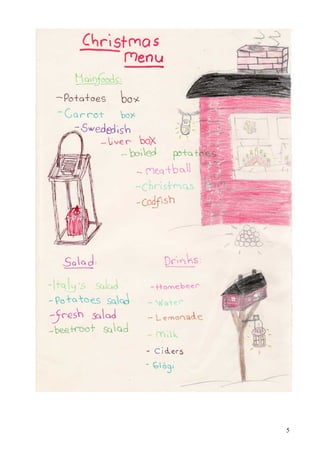 Christmas
Menu
Mainfoods:
-Potatoes box
-Carrot box
-Swededish
-Liver box
-boiled potatoes
-Meatball
-Christmas
-Codfish
Salad:
-Italy's salad
-Potatoes salad
-fresh salad
-beetroot salad
Drinks:
-Homebeer
-Water
-Lemonade
-Milk
-Ciders
-Glögi
5